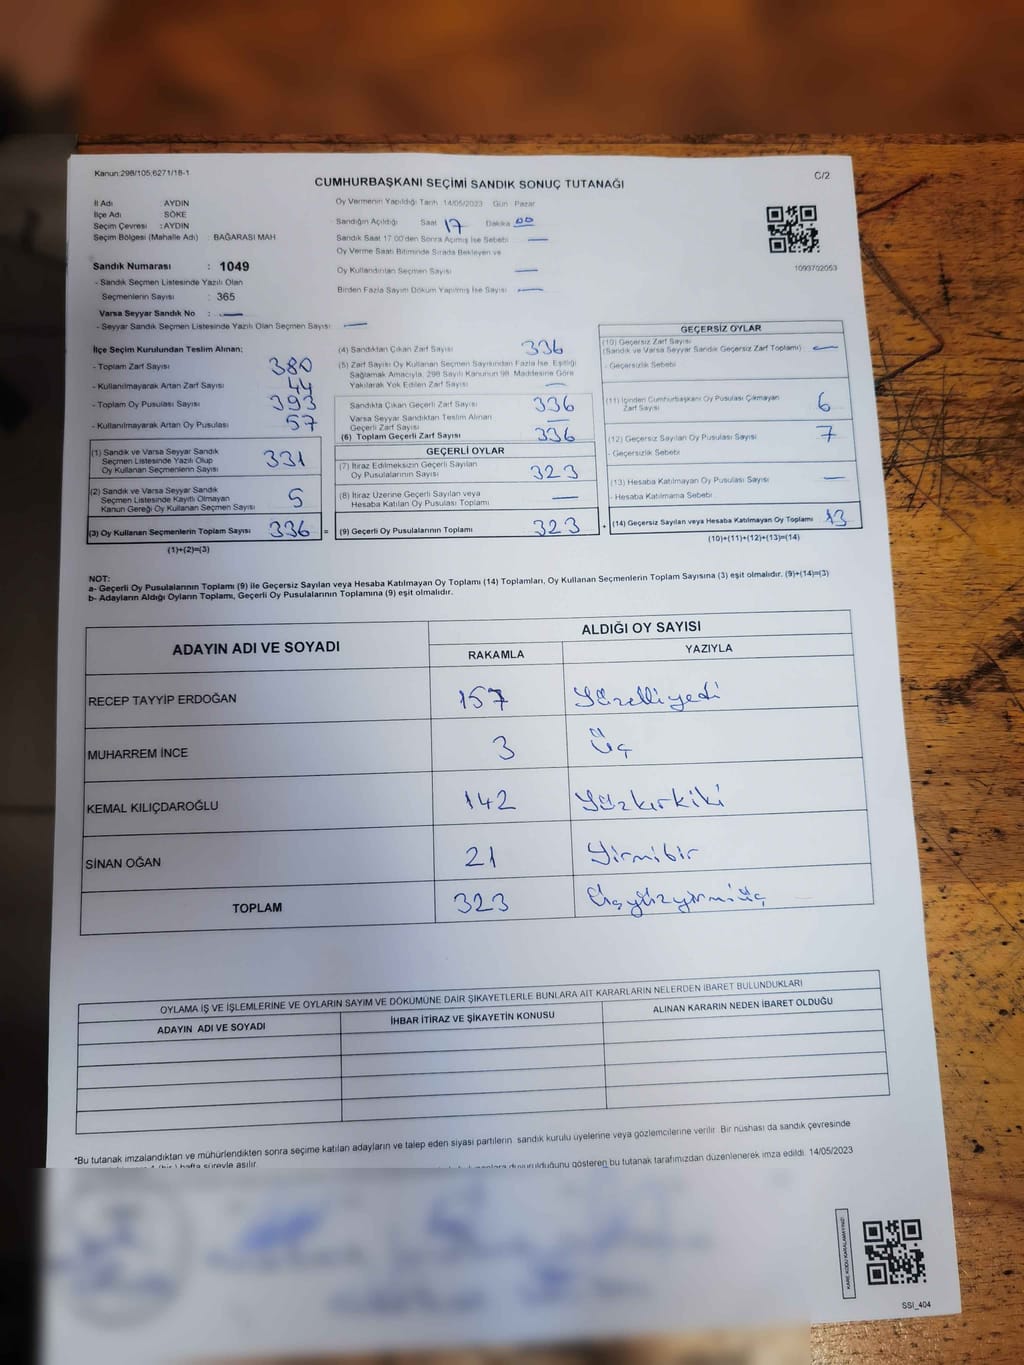 Kanun:298/105;6271/18-1
C/2
CUMHURBAŞKANI SEÇİMİ SANDIK SONUÇ TUTANAĞI
İl Adı AYDIN
İlçe Adı SÖKE
Seçim Çevresi : AYDIN
Seçim Bölgesi (Mahalle Adı) : BAĞARASI MAH
Sandık Numarası : 1049
- Sandık Seçmen Listesinde Yazılı Olan
Seçmenlerin Sayısı : 365
Varsa Seyyar Sandık No : —
- Seyyar Sandık Seçmen Listesinde Yazılı Olan Seçmen Sayısı : —
Oy Vermenin Yapıldığı Tarih 14/05/2023 Gün Pazar
Sandığın Açıldığı Saat 17 Dakika 00
Sandık Saat 17.00'den Sonra Açılmış İse Sebebi —
Oy Verme Saati Bitiminde Sırada Bekleyen ve
Oy Kullandırılan Seçmen Sayısı —
Birden Fazla Sayım Döküm Yapılmış İse Sayısı —
1093702053
İlçe Seçim Kurulundan Teslim Alınan:
- Toplam Zarf Sayısı : 380
- Kullanılmayarak Artan Zarf Sayısı : 44
- Toplam Oy Pusulası Sayısı : 393
- Kullanılmayarak Artan Oy Pusulası : 57
(1) Sandık ve Varsa Seyyar Sandık
Seçmen Listesinde Yazılı Olup
Oy Kullanan Seçmenlerin Sayısı 331
(2) Sandık ve Varsa Seyyar Sandık
Seçmen Listesinde Kayıtlı Olmayan
Kanun Gereği Oy Kullanan Seçmen Sayısı 5
(3) Oy Kullanan Seçmenlerin Toplam Sayısı 336 =
(1)+(2)=(3)
(4) Sandıktan Çıkan Zarf Sayısı 336
(5) Zarf Sayısı Oy Kullanan Seçmen Sayısından Fazla İse, Eşitliği
Sağlamak Amacıyla, 298 Sayılı Kanunun 98. Maddesine Göre
Yakılarak Yok Edilen Zarf Sayısı —
Sandıkta Çıkan Geçerli Zarf Sayısı 336
Varsa Seyyar Sandıktan Teslim Alınan
Geçerli Zarf Sayısı —
(6) Toplam Geçerli Zarf Sayısı 336
GEÇERLİ OYLAR
(7) İtiraz Edilmeksizin Geçerli Sayılan
Oy Pusulasının Sayısı 323
(8) İtiraz Üzerine Geçerli Sayılan veya
Hesaba Katılan Oy Pusulası Toplamı —
(9) Geçerli Oy Pusulalarının Toplamı 323 +
GEÇERSİZ OYLAR
(10) Geçersiz Zarf Sayısı
(Sandık ve Varsa Seyyar Sandık Geçersiz Zarf Toplamı) —
- Geçersizlik Sebebi
(11) İçinden Cumhurbaşkanı Oy Pusulası Çıkmayan
Zarf Sayısı 6
(12) Geçersiz Sayılan Oy Pusulası Sayısı 7
- Geçersizlik Sebebi
(13) Hesaba Katılmayan Oy Pusulası Sayısı —
- Hesaba Katılmama Sebebi
(14) Geçersiz Sayılan veya Hesaba Katılmayan Oy Toplamı 13
(10)+(11)+(12)+(13)=(14)
NOT:
a- Geçerli Oy Pusulalarının Toplamı (9) ile Geçersiz Sayılan veya Hesaba Katılmayan Oy Toplamı (14) Toplamları, Oy Kullanan Seçmenlerin Toplam Sayısına (3) eşit olmalıdır. (9)+(14)=(3)
b- Adayların Aldığı Oyların Toplamı, Geçerli Oy Pusulalarının Toplamına (9) eşit olmalıdır.
ADAYIN ADI VE SOYADI
ALDIĞI OY SAYISI
RAKAMLA YAZIYLA
RECEP TAYYİP ERDOĞAN 157 Yüzelliyedi
MUHARREM İNCE 3 Üç
KEMAL KILIÇDAROĞLU 142 Yüzkırkiki
SİNAN OĞAN 21 Yirmibir
TOPLAM 323 Üçyüzyirmiüç
OYLAMA İŞ VE İŞLEMLERİNE VE OYLARIN SAYIM VE DÖKÜMÜNE DAİR ŞİKAYETLERLE BUNLARA AİT KARARLARIN NELERDEN İBARET BULUNDUKLARI
ADAYIN ADI VE SOYADI İHBAR İTİRAZ VE ŞİKAYETİN KONUSU ALINAN KARARIN NEDEN İBARET OLDUĞU
*Bu tutanak imzalandıktan ve mühürlendikten sonra seçime katılan adayların ve talep eden siyasi partilerin sandık kurulu üyelerine veya gözlemcilerine verilir. Bir nüshası da sandık çevresinde
hafta süreyle asılır.
duyurulduğunu gösteren bu tutanak tarafımızdan düzenlenerek imza edildi. 14/05/2023
KARE KODU KARALAMAYINIZ!
SSI_404